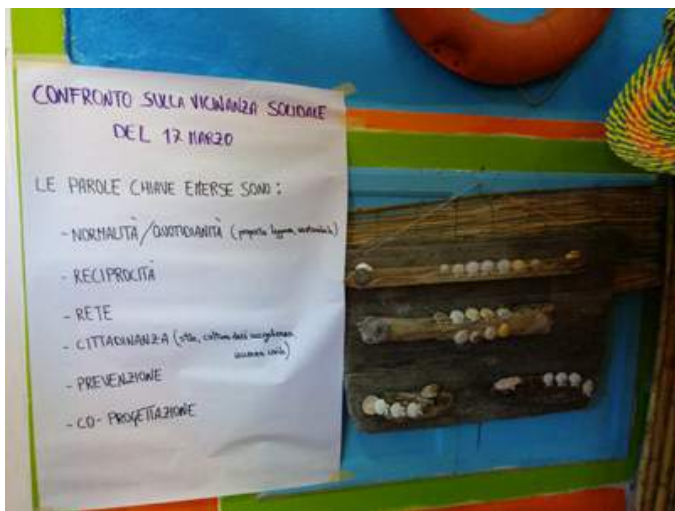 CONFRONTO SULLA VICINANZA SOLIDALE
DEL 17 MARZO
LE PAROLE CHIAVE EMERSE SONO:
- NORMALITÀ/QUOTIDIANITÀ (proposta leggera, sostenibile)
- RECIPROCITÀ
- RETE
- CITTADINANZA (stile, cultura dell'accoglienza,
- PREVENZIONE
- CO-PROGETTAZIONE